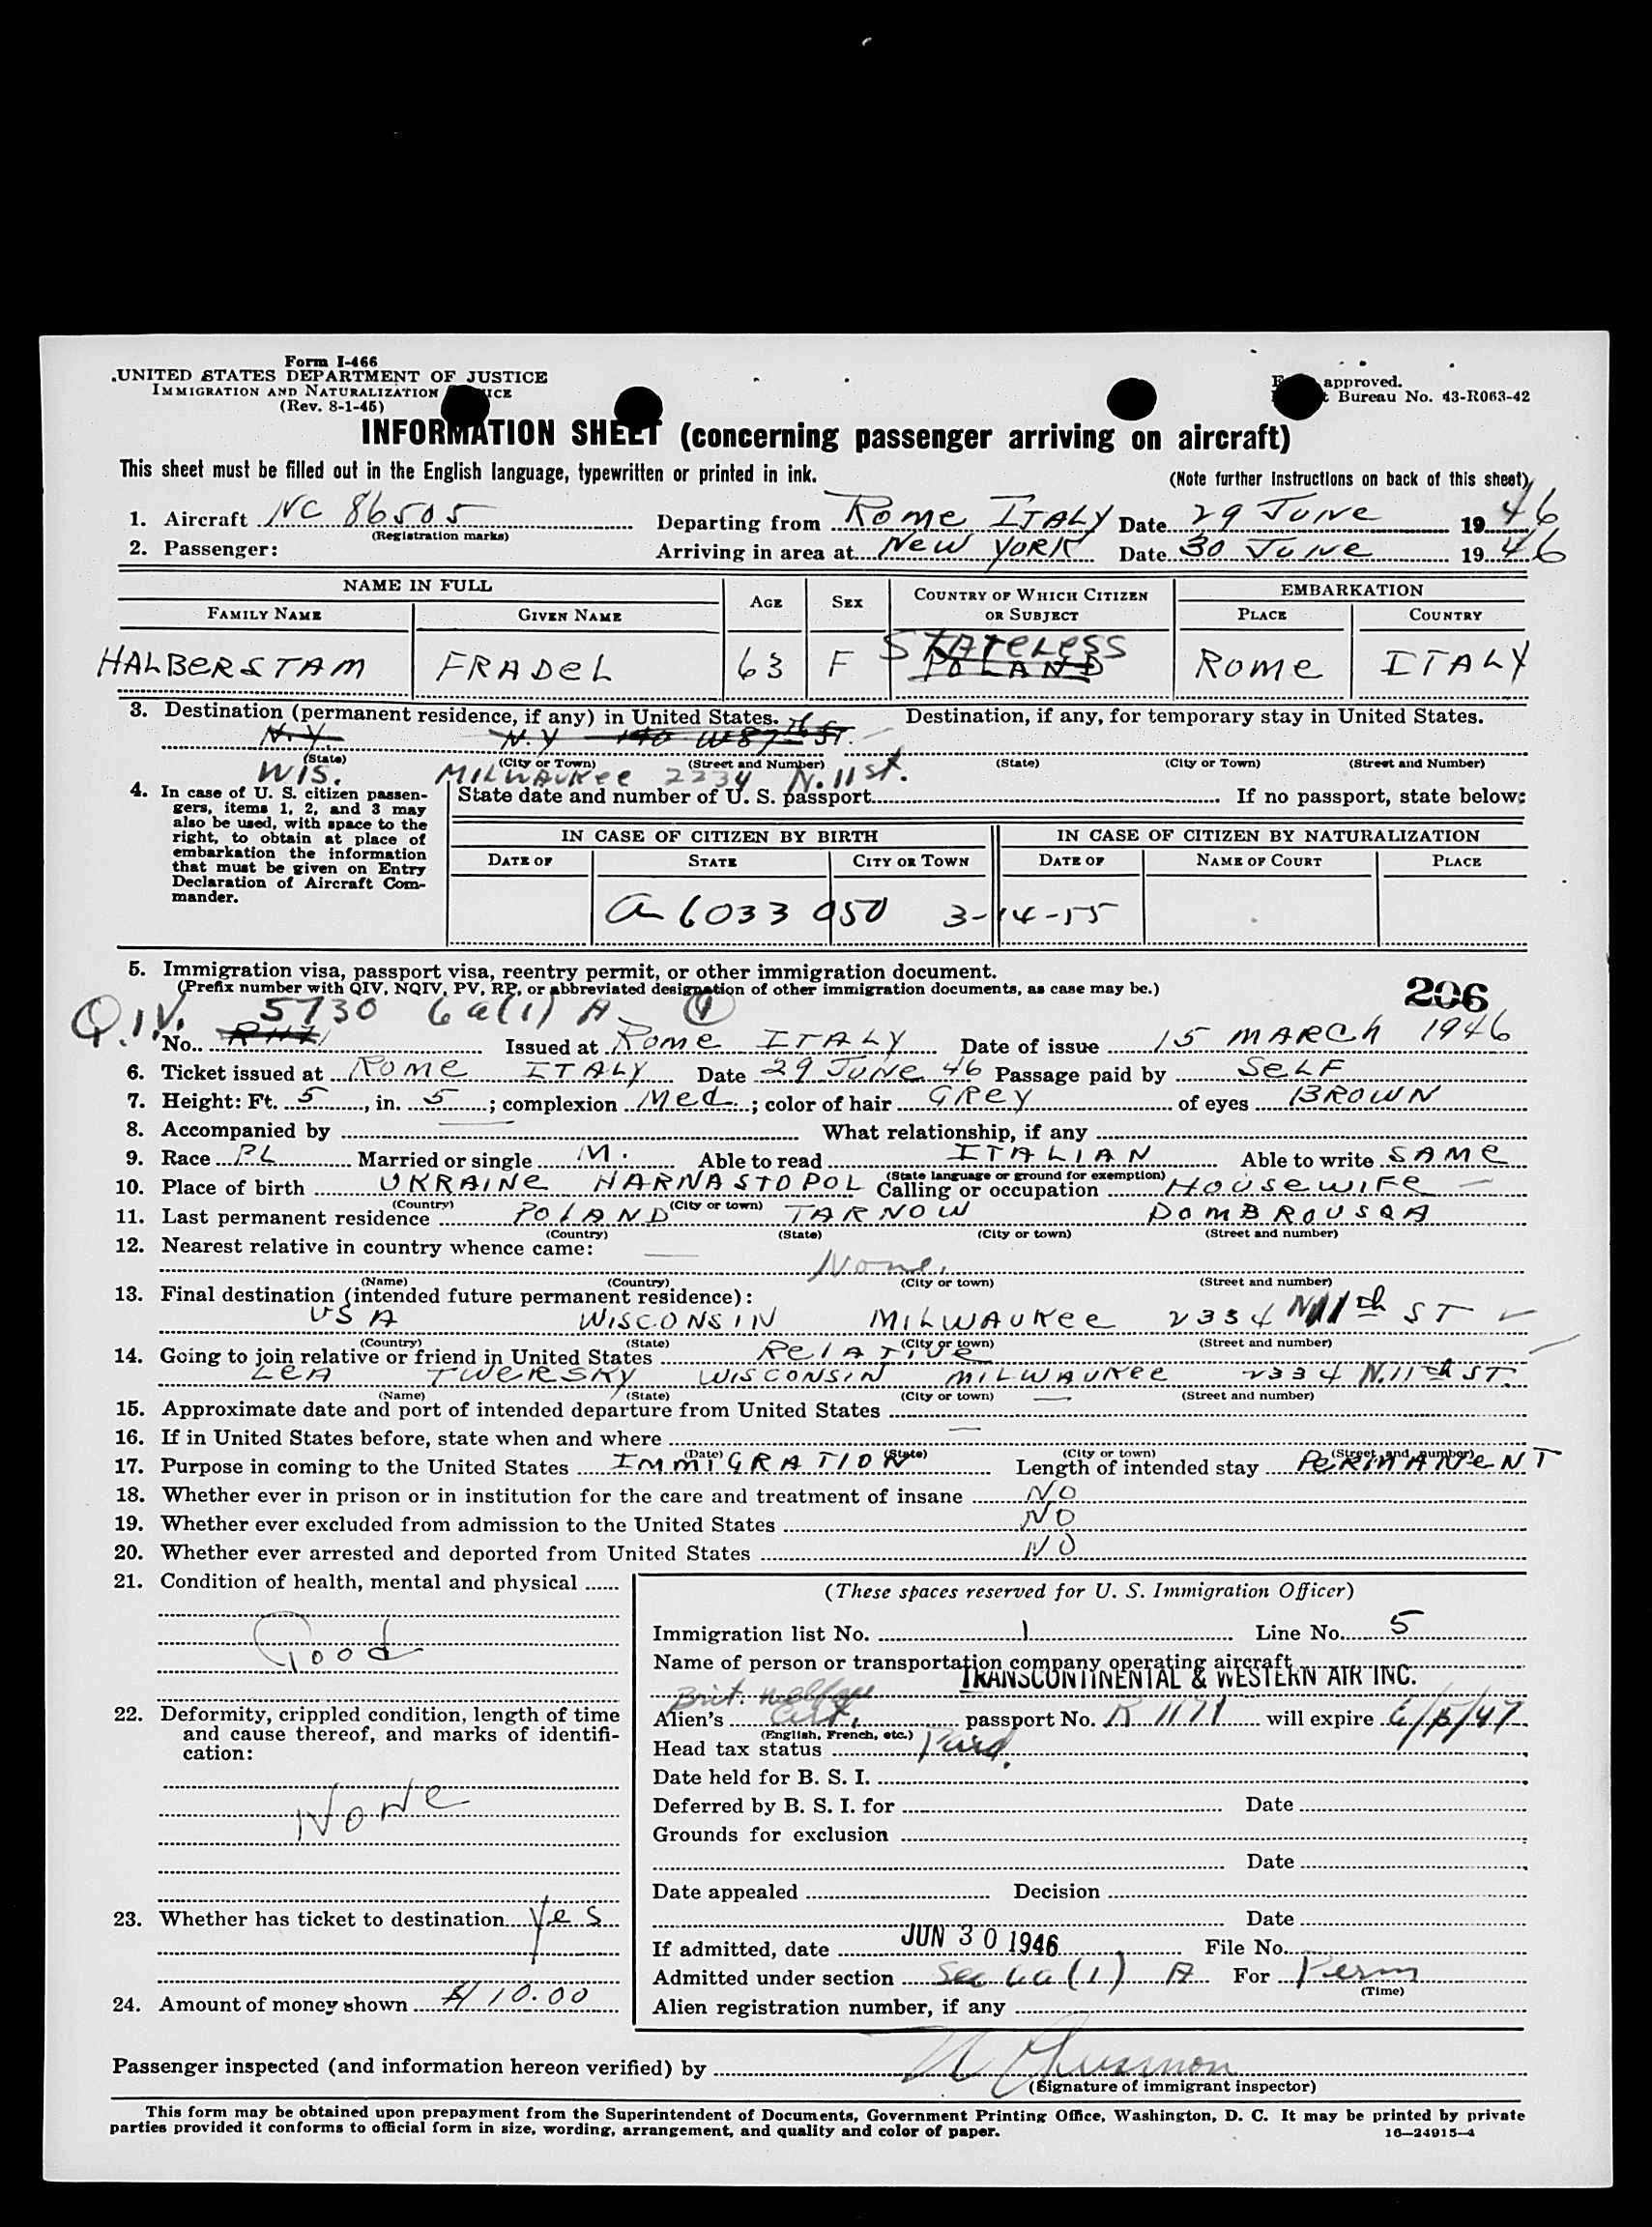 Form I-466
UNITED STATES DEPARTMENT OF JUSTICE
IMMIGRATION AND NATURALIZATION
(Rev. 8-1-45)
approved.
Bureau No. 43-R063-42
INFORMATION SHEET (concerning passenger arriving on aircraft)
This sheet must be filled out in the English language, typewritten or printed in ink.
(Note further instructions on back of this sheet)
1. Aircraft NC 86505 Departing from Rome ITALY Date 29 JUNE 1946
(Registration marks)
2. Passenger: Arriving in area at New YORK Date 30 JUNE 1946
NAME IN FULL AGE SEX COUNTRY OF WHICH CITIZEN OR SUBJECT EMBARKATION
FAMILY NAME GIVEN NAME PLACE COUNTRY
STATELESS
HALBERSTAM FRADEL 63 F POLAND ROME ITALY
3. Destination (permanent residence, if any) in United States. Destination, if any, for temporary stay in United States.
N.Y. N.Y 140 W 87th ST.
(State) (City or Town) (Street and Number) (State) (City or Town) (Street and Number)
WIS. MILWAUKee 2334 N. 11 st.
4. In case of U. S. citizen passengers, items 1, 2, and 3 may also be used, with space to the right, to obtain at place of embarkation the information that must be given on Entry Declaration of Aircraft Commander.
State date and number of U. S. passport If no passport, state below:
IN CASE OF CITIZEN BY BIRTH IN CASE OF CITIZEN BY NATURALIZATION
DATE OF STATE CITY OR TOWN DATE OF NAME OF COURT PLACE
a 6033 050 3-14-55
5. Immigration visa, passport visa, reentry permit, or other immigration document.
(Prefix number with QIV, NQIV, PV, RP, or abbreviated designation of other immigration documents, as case may be.)
296
Q.I.V. 5730 6a(1) A
No. Issued at Rome ITALY Date of issue 15 MARCH 1946
6. Ticket issued at ROME ITALY Date 29 JUNE 46 Passage paid by SELF
7. Height: Ft. 5, in. 5; complexion Med.; color of hair GREY of eyes BROWN
8. Accompanied by What relationship, if any
9. Race PL Married or single M. Able to read ITALIAN Able to write SAME
(State language or ground for exemption)
10. Place of birth UKRAINE HARNASTOPOL Calling or occupation HOUSEWIFE
(Country) (City or town)
11. Last permanent residence POLAND TARNOW DOMBROUSQA
(Country) (State) (City or town) (Street and number)
12. Nearest relative in country whence came:
None.
(Name) (Country) (City or town) (Street and number)
13. Final destination (intended future permanent residence):
USA WISCONSIN MILWAUKee 2334 N 11th ST
(Country) (State) (City or town) (Street and number)
14. Going to join relative or friend in United States RelATIVE
LEA TWERSKY WISCONSIN MILWAUKee 2334 N. 11th ST.
(Name) (State) (City or town) (Street and number)
15. Approximate date and port of intended departure from United States
16. If in United States before, state when and where
(Date) (State) (City or town) (Street and number)
17. Purpose in coming to the United States IMMIGRATION Length of intended stay PERMANENT
18. Whether ever in prison or in institution for the care and treatment of insane NO
19. Whether ever excluded from admission to the United States NO
20. Whether ever arrested and deported from United States NO
21. Condition of health, mental and physical
Good
22. Deformity, crippled condition, length of time and cause thereof, and marks of identification:
NoNe
23. Whether has ticket to destination Yes
24. Amount of money shown $ 10.00
(These spaces reserved for U. S. Immigration Officer)
Immigration list No. 1 Line No. 5
Name of person or transportation company operating aircraft
TRANSCONTINENTAL & WESTERN AIR INC.
Alien's passport No. R 1171 will expire
(English, French, etc.)
Head tax status Paid.
Date held for B. S. I.
Deferred by B. S. I. for Date
Grounds for exclusion
Date
Date appealed Decision
Date
If admitted, date JUN 30 1946 File No.
Admitted under section Sec 6a(1) A For Perm
(Time)
Alien registration number, if any
Passenger inspected (and information hereon verified) by
(Signature of immigrant inspector)
This form may be obtained upon prepayment from the Superintendent of Documents, Government Printing Office, Washington, D. C. It may be printed by private
parties provided it conforms to official form in size, wording, arrangement, and quality and color of paper.
16—24915-4